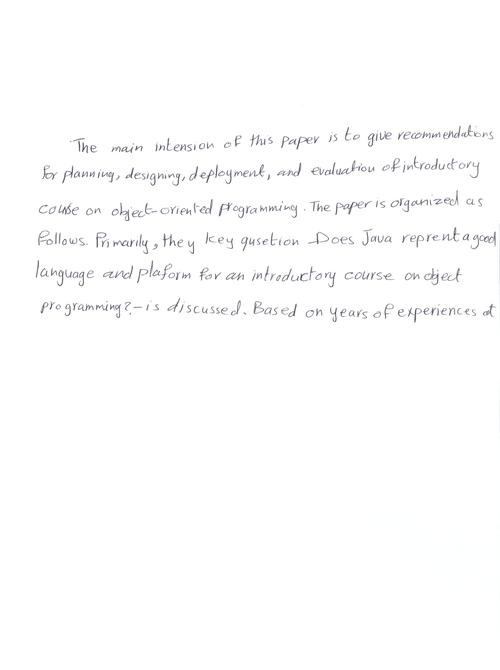 The main intension of this paper is to give recommendations
for planning, designing, deployment, and evaluation of introductory
course on object-oriented programming. The paper is organized as
follows. Primarily, they key qusetion –Does Java reprent a good
language and plaform for an introductory course on object
programming?– is discussed. Based on years of experiences at